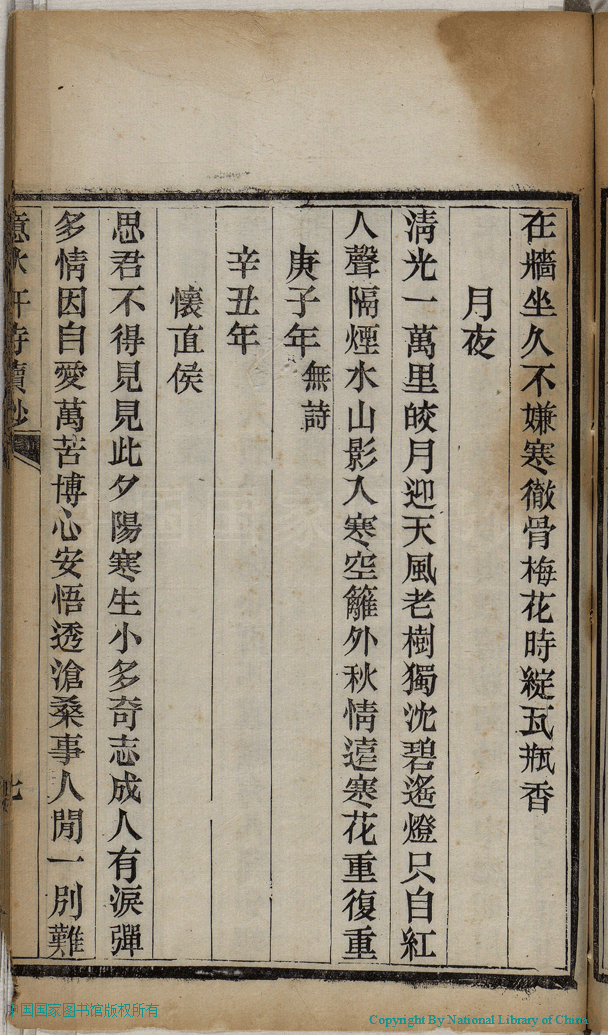 在牆坐久不嫌寒徹骨梅花時綻瓦瓶香
月夜
清光一萬里皎月迎天風老樹獨沈碧遙燈只自紅
人聲隔煙水山影入寒空籬外秋情遠寒花重復重
庚子年 無詩
辛丑年
懷直侯
思君不得見見此夕陽寒生小多奇志成人有淚彈
多情因自愛萬苦博心安悟透滄桑事人閒一別難
中国国家图书馆版权所有
Copyright By National Library of China